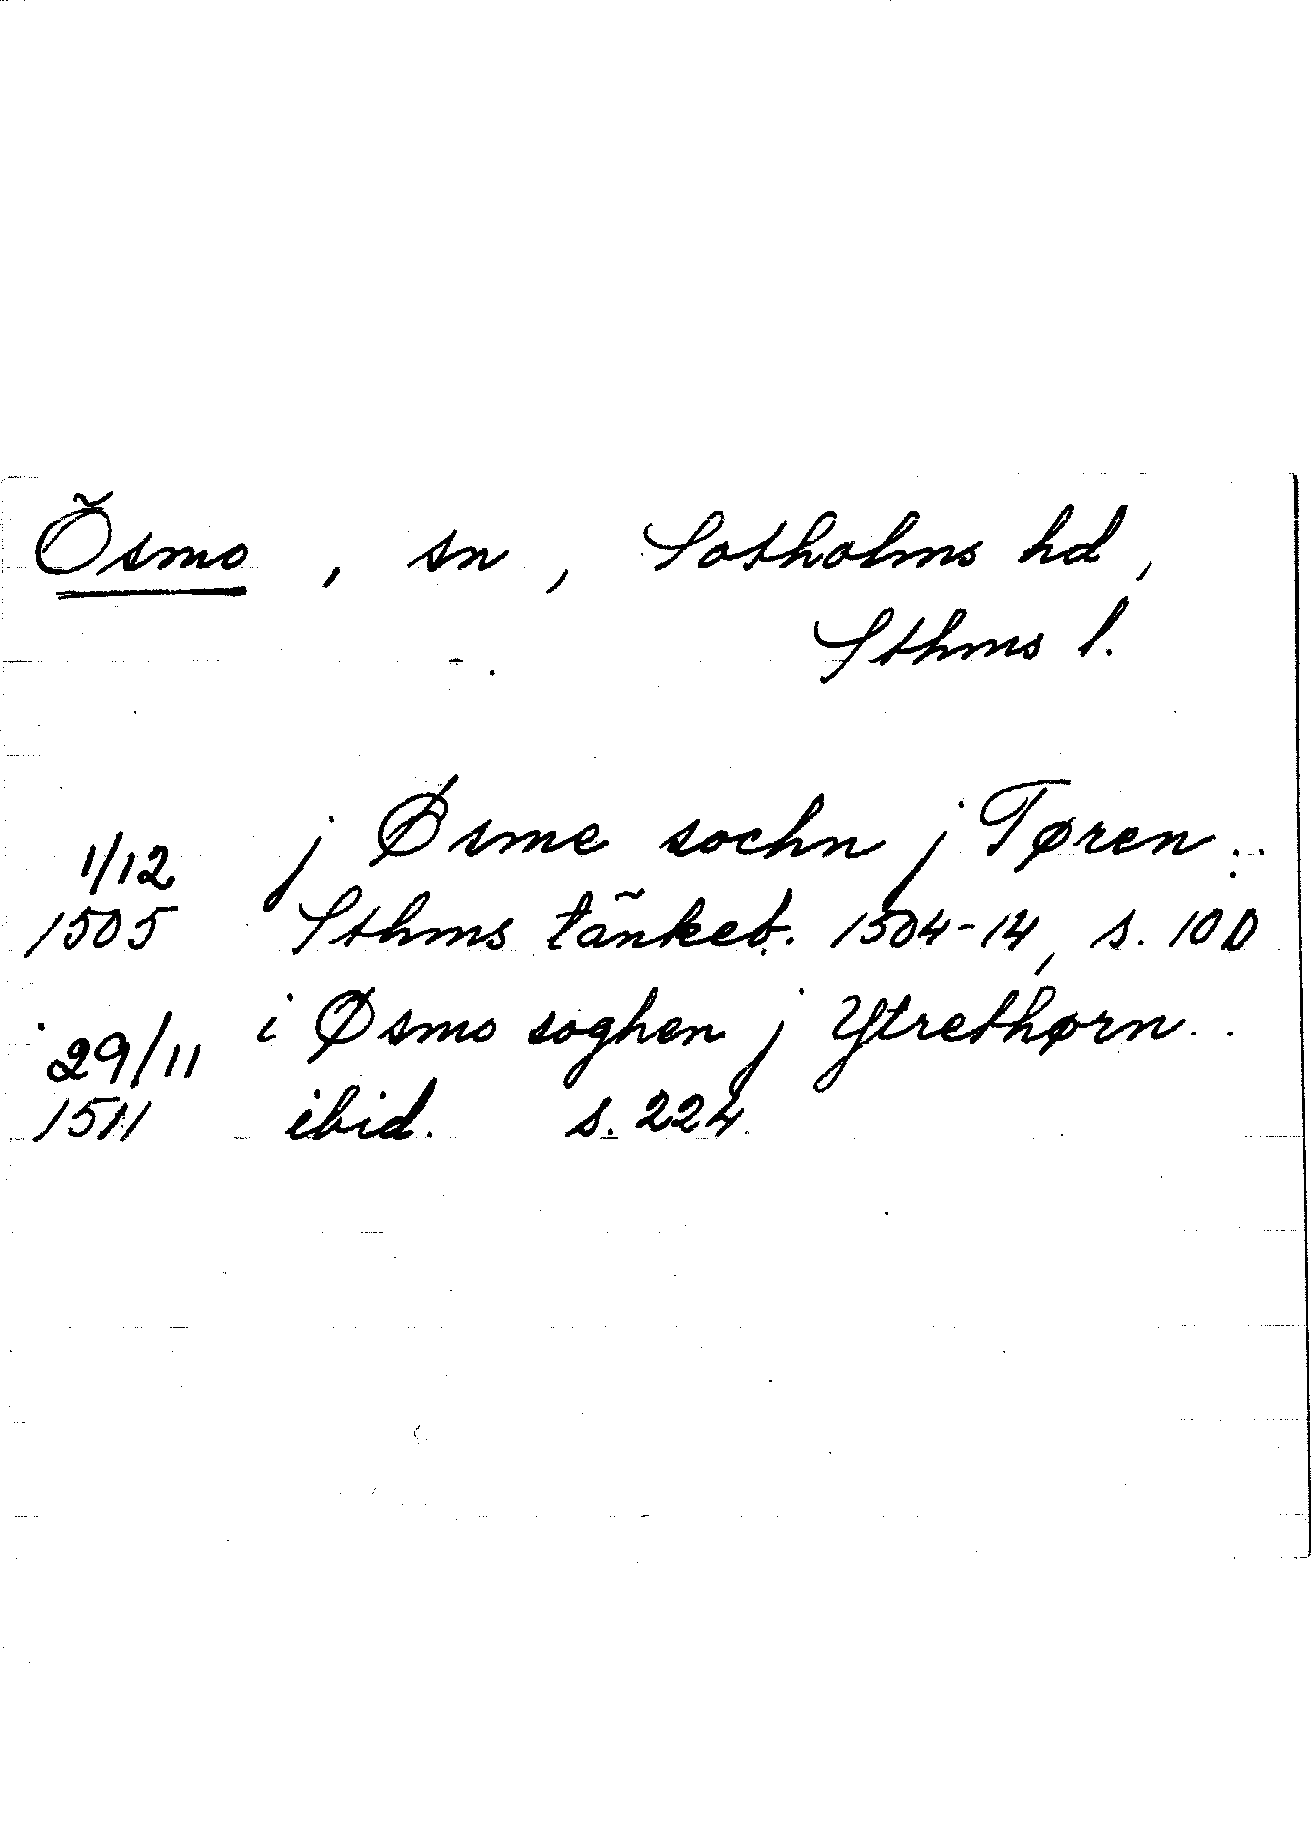 Ösmo, sn, Sotholms hd,
Sthms l.
1/12 j Øsme sochn j Tøren..
1505 Sthms tänkeb. 1504-14, s. 100
29/11 i Øsmo soghen j Ytrethørn..
1511 ibid. s. 224